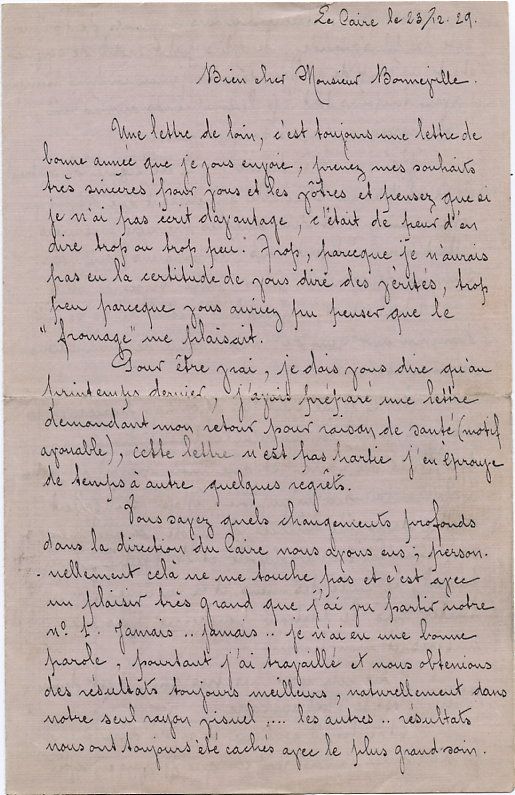 Le Caire le 23/12.29.
Bien cher Monsieur Bonneville.
Une lettre de loin, c'est toujours une lettre de
bonne année que je vous envoie, prenez mes souhaits
très sincères pour vous et les vôtres et pensez que si
je n'ai pas écrit davantage, c'était de peur d'en
dire trop ou trop peu. Trop, parceque je n'aurais
pas eu la certitude de vous dire des vérités, trop
peu parceque vous auriez pu penser que le
"fromage" me plaisait.
Pour être vrai, je dois vous dire qu'au
printemps dernier, j'avais préparé une lettre
demandant mon retour pour raison de santé (motif
avouable), cette lettre n'est pas partie j'en éprouve
de temps à autre quelques regrêts.
Vous savez quels changements profonds
dans la direction du Caire nous avons eus; person-
nellement celà ne me touche pas et c'est avec
un plaisir très grand que j'ai vu partir notre
nº 1. Jamais .. jamais .. je n'ai eu une bonne
parole, pourtant j'ai travaillé et nous obtenions
des résultats toujours meilleurs, naturellement dans
notre seul rayon visuel .... les autres .. résultats
nous ont toujours été cachés avec le plus grand soin.